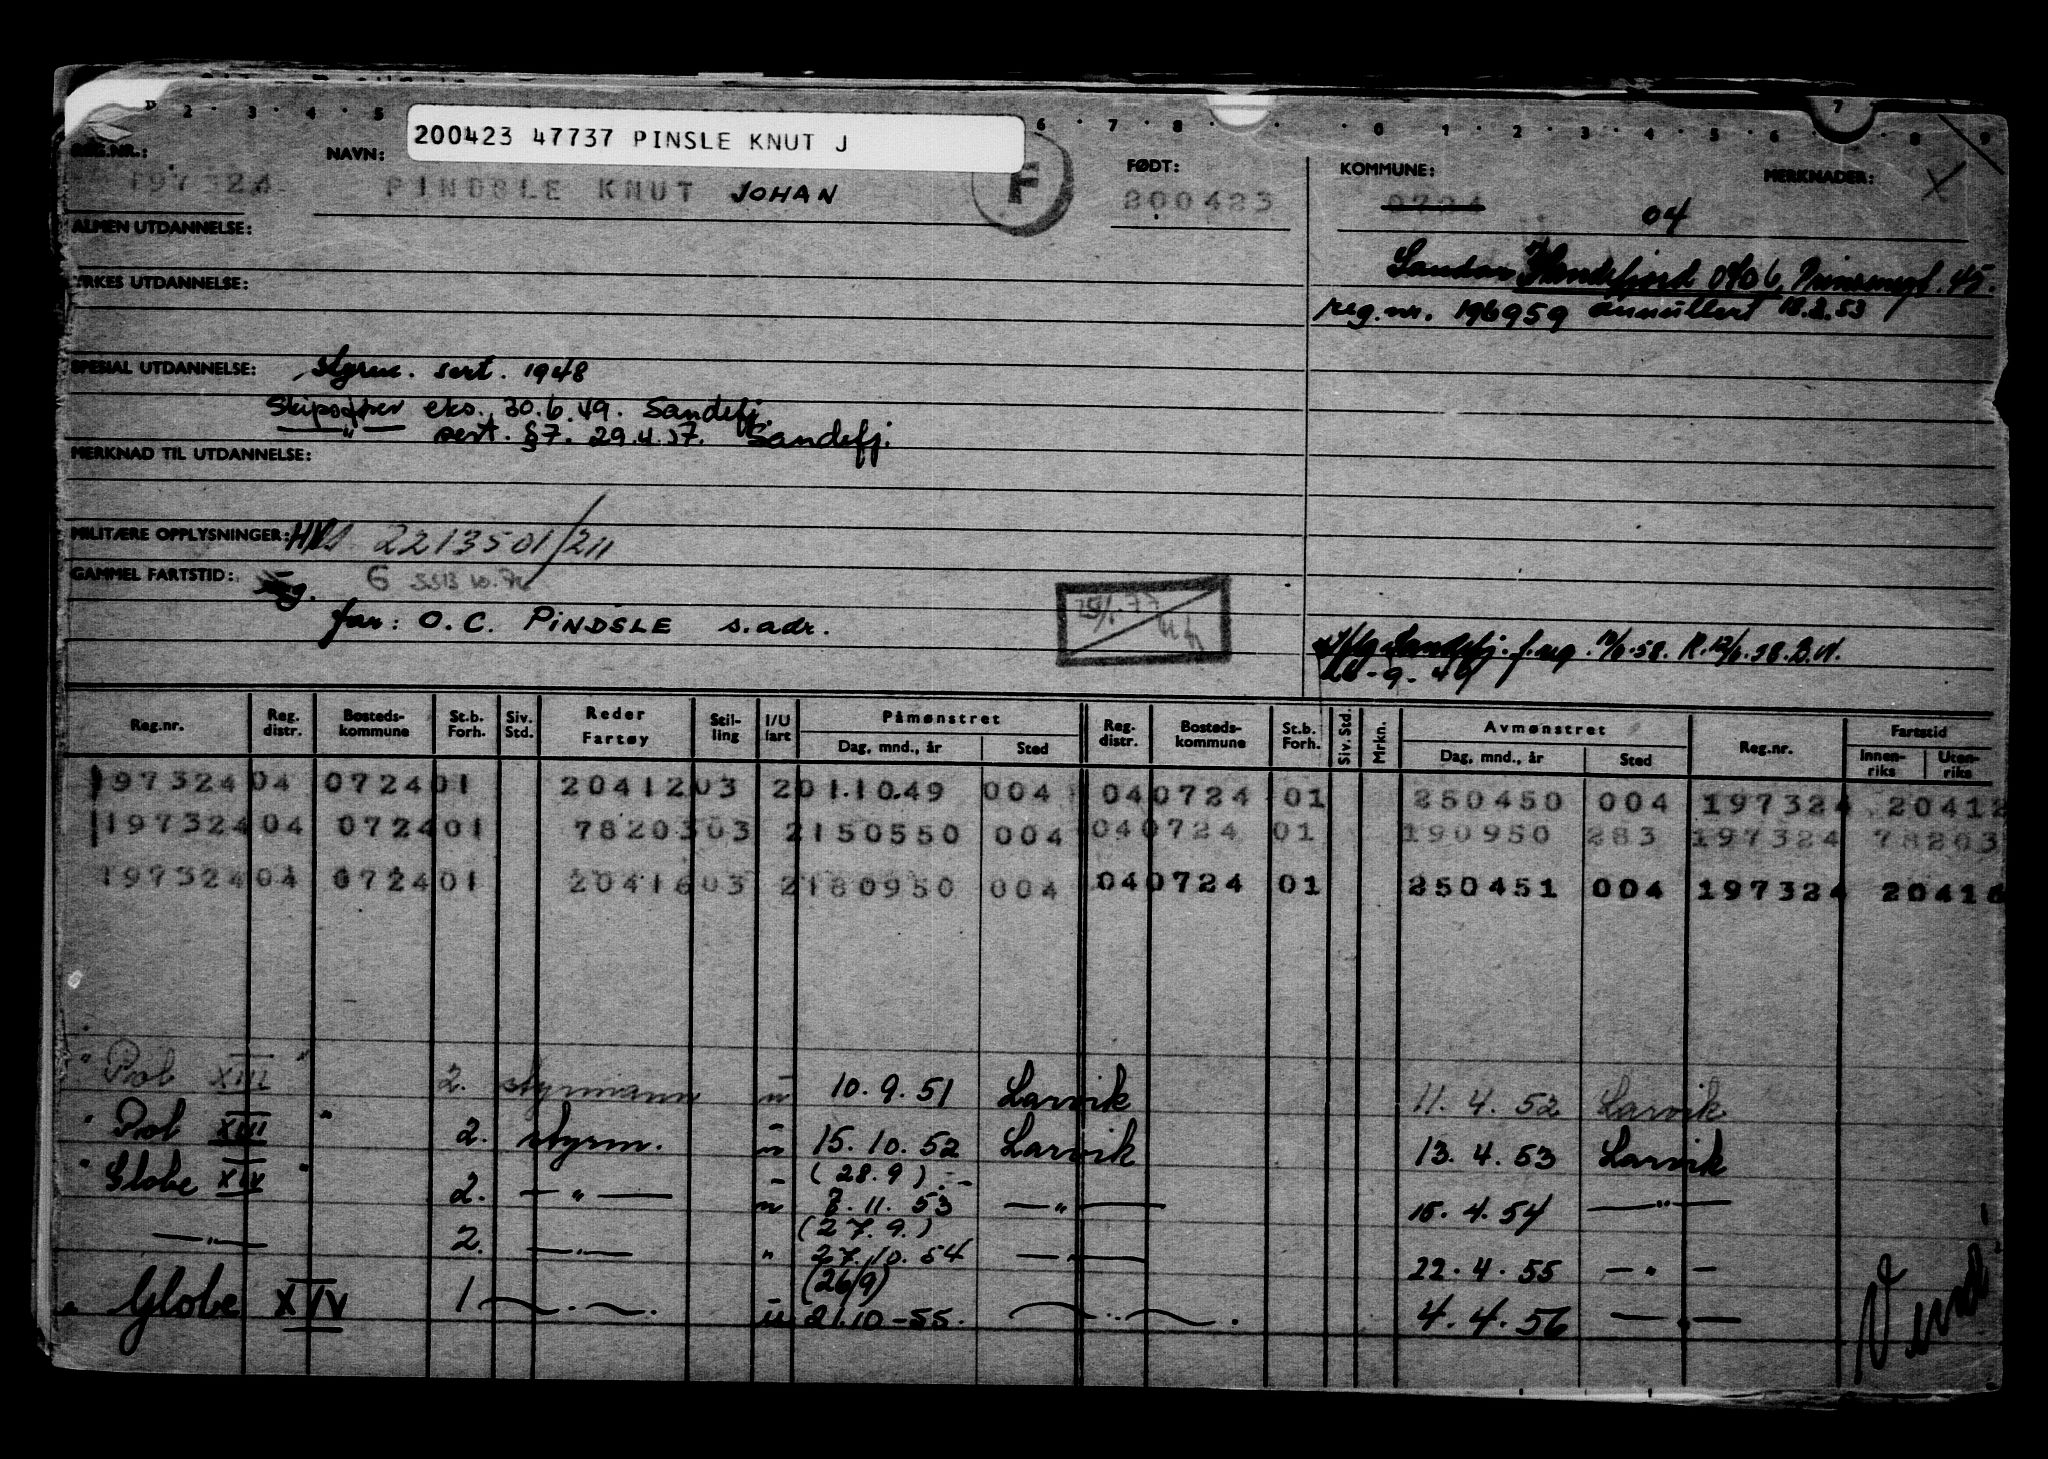 2 · 3 · 4 · 5 6 · 7 · 8 · 0 1 · 2 · 3 · 4 · 5 · 6 7 8 9
200423 47737 PINSLE KNUT J
REG.NR.: NAVN: FØDT: KOMMUNE: MERKNADER: X
197324 PINDSLE KNUT JOHAN F 200423 0724 04
ALMEN UTDANNELSE:
Sandar Sandefjord 0706, Prinsensgt. 45.
YRKES UTDANNELSE:
reg.nr. 196959 annullert 18.3.53
SPESIAL UTDANNELSE: Styrm. sert. 1948
Skipsfører eks. 30.6.49. Sandefj.
— " — sert. §7. 29.4.57. Sandefj.
MERKNAD TIL UTDANNELSE:
MILITÆRE OPPLYSNINGER: 2213501/211
GAMMEL FARTSTID: G
far: O.C. PINDSLE s.adr.
Sandefj. f.reg. R. B.N.
26-9.49
Reg.nr. Reg. distr. Bosteds-kommune St.b. Forh. Siv. Std. Reder Fartøy Stil-ling I/U fart Påmønstret Dag, mnd., år Sted Reg. distr. Bosteds-kommune St.b. Forh. Siv. Std. Mrkn. Avmønstret Dag, mnd., år Sted Reg.nr. Fartstid Innen-riks Uten-riks
197324 04 0724 01 20412 03 2 01.10.49 004 04 0724 01 250450 004 197324 20412
197324 04 0724 01 78203 03 2 150550 004 04 0724 01 190950 283 197324 78203
197324 04 0724 01 20416 03 2 180950 004 04 0724 01 250451 004 197324 20416
" Pol XIII " 2. styrmann u 10.9.51 Larvik 11.4.52 Larvik
" Pol XIII " 2. styrm. u 15.10.52 Larvik 13.4.53 Larvik
(28.9)
" Globe XIV " 2. — " — u 8.11.53 — " — 15.4.54 — " —
(27.9.)
— " — 2. — " — " 27.10.54 — " — 22.4.55 — " —
(26/9)
" Globe XIV 1 — " — u 21.10-55. — " — 4.4.56 — " —
Vend!